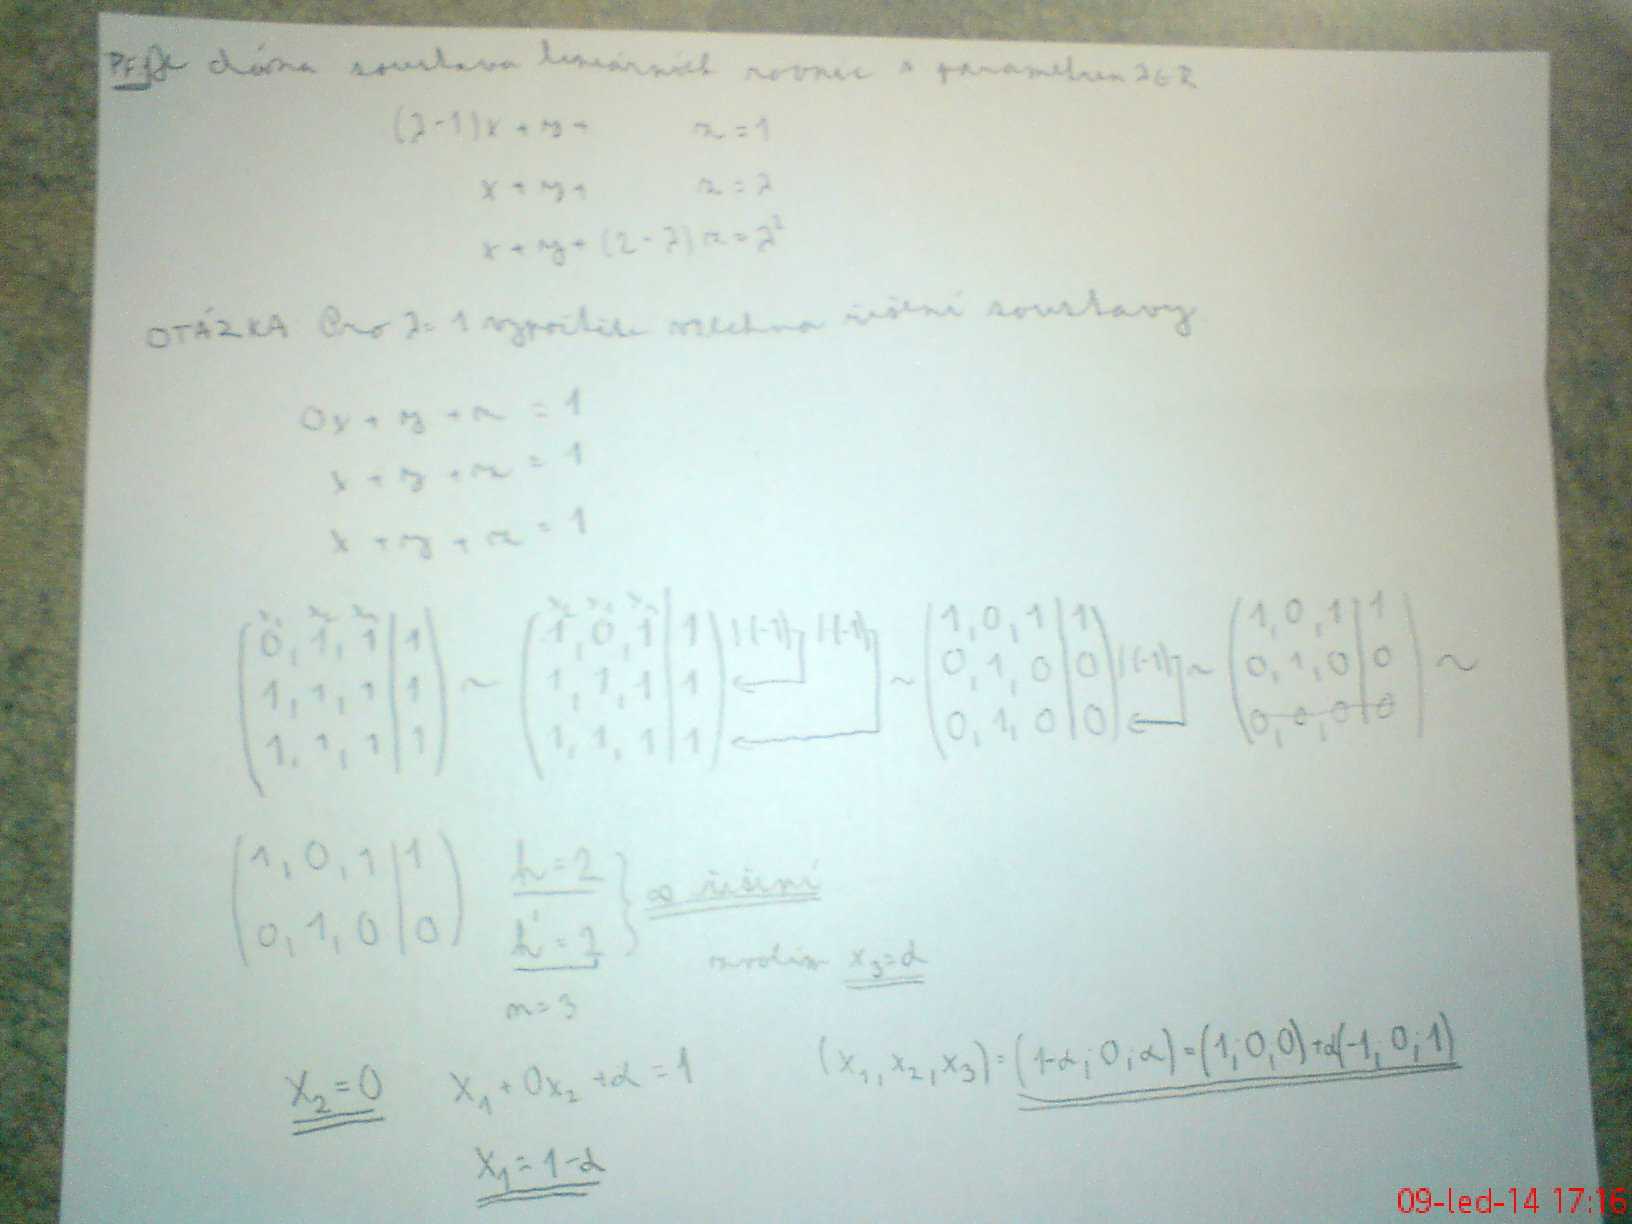 Př. Je dána soustava lineárních rovnic s parametrem λ∈R
(λ-1)x + y + z = 1
x + y + z = λ
x + y + (2-λ)z = λ²
OTÁZKA Pro λ=1 vypočtěte všechna řešení soustavy
0x + y + z = 1
x + y + z = 1
x + y + z = 1
(0, 1, 1 | 1) ~ (1, 0, 1 | 1) |(-1) |(-1) ~ (1, 0, 1 | 1) ~ (1, 0, 1 | 1) ~
(1, 1, 1 | 1) (1, 1, 1 | 1) (0, 1, 0 | 0) |(-1) (0, 1, 0 | 0)
(1, 1, 1 | 1) (1, 1, 1 | 1) (0, 1, 0 | 0) (0, 0, 0 | 0)
(1, 0, 1 | 1) h=2
(0, 1, 0 | 0) h'=2 } ∞ řešení
n=3
zvolím x₃=α
x₂=0 x₁+0x₂+α=1 (x₁,x₂,x₃)=(1-α;0;α)=(1;0;0)+α(-1;0;1)
x₁=1-α
09-led-14 17:16